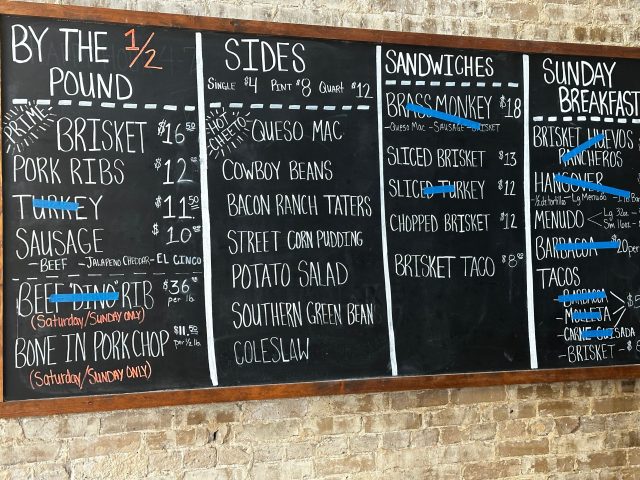 BY THE 1/2
POUND
PRIME
BRISKET $16 50
PORK RIBS $12 00
TURKEY $11 50
SAUSAGE $10 00
-BEEF -JALAPENO CHEDDAR -EL CINCO
BEEF "DINO" RIB $36 00
per lb.
(Saturday/SUNDAY ONLY)
BONE IN PORK CHOP $11.50
per 1/2 lb.
(Saturday/SUNDAY ONLY)
SIDES
SINGLE $4 PINT $8 QUART $12
HOT CHEETO QUESO MAC
COWBOY BEANS
BACON RANCH TATERS
STREET CORN PUDDING
POTATO SALAD
SOUTHERN GREEN BEAN
COLESLAW
SANDWICHES
BRASS MONKEY $18
-QUESO MAC -SAUSAGE -BRISKET
SLICED BRISKET $13
SLICED TURKEY $12
CHOPPED BRISKET $12
BRISKET TACO $8 00
SUNDAY
BREAKFAST
BRISKET HUEVOS
RANCHEROS
HANGOVER
-Lg Menudo
MENUDO Lg 32oz
Sm 16oz
BARBACOA $20per
TACOS
-BARBACOA
-MOLLEJA $5
-CARNE GUISADA
-BRISKET -$6